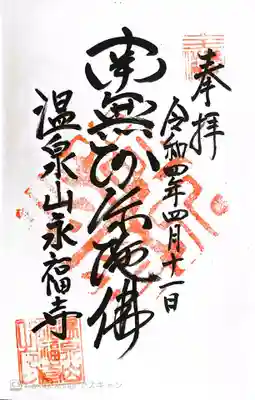 奉拝
令和四年四月十一日
南無阿弥陀佛
温泉山永福寺